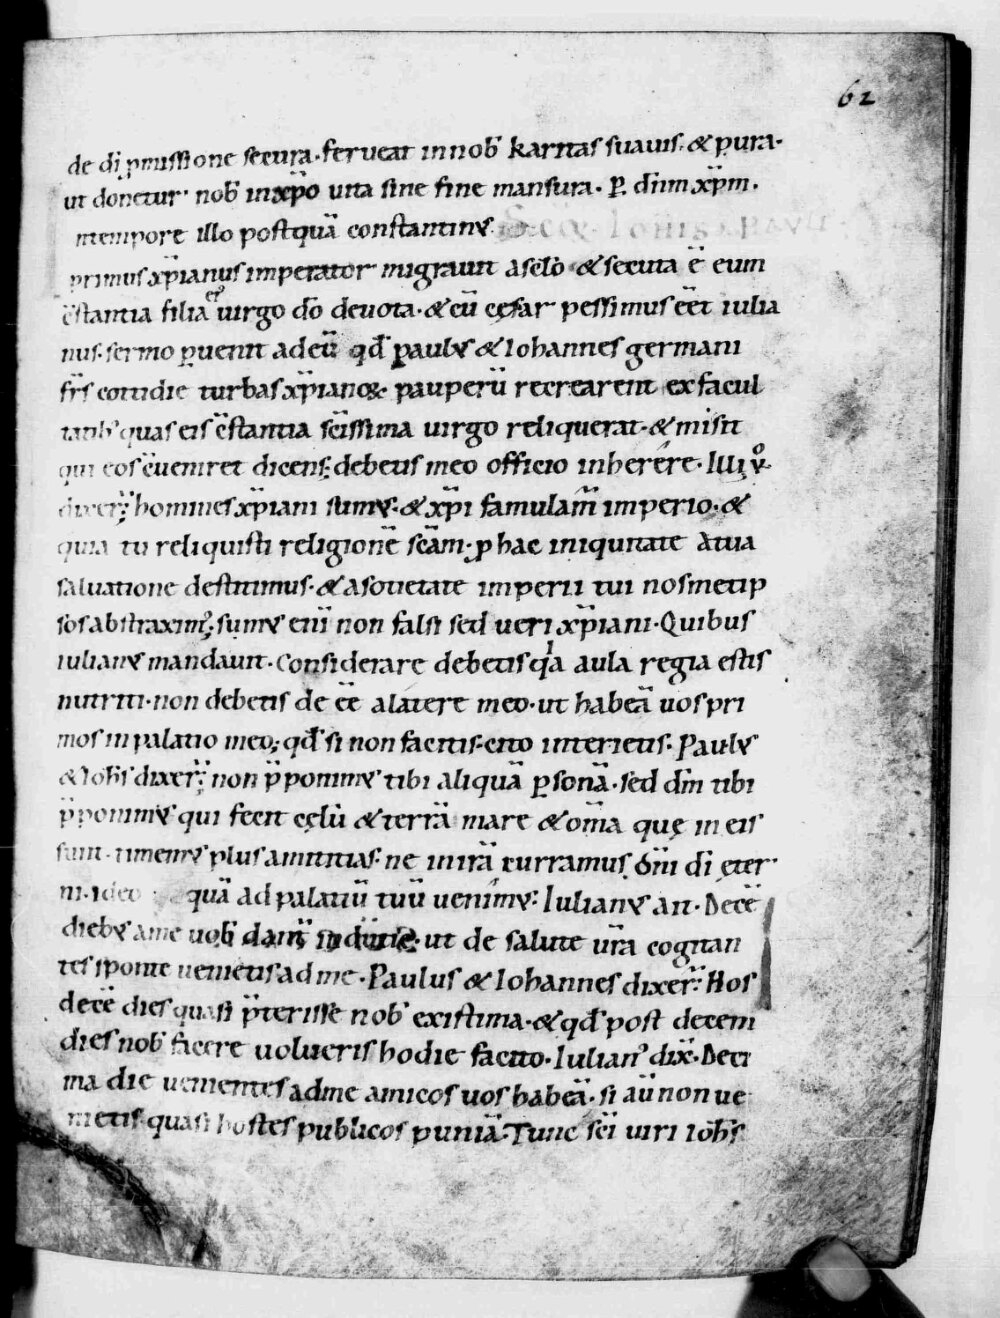 62
de dī p̄missione secura · ferueat in nob̄ karitas suauis · & pura ·
ut donetur nob̄ in xp̄o uita sine fine mansura · P̱ dn̄m xp̄m .
n tempore illo postquā constantinus
primus xp̄ianus imperator migrauit a sc̄lo & secuta ē eum
c̄stantia filia ei' uirgo dō deuota · & cū cęsar pessimus eēt iulia
nus · sermo p̱uenit ad eū qđ paulus & Iohannes germani
fr̄s cottidie turbas xp̄ianoꝝ pauperū recrearent ex facul
tatib; quas eis c̄stantia sc̄issima uirgo reliquerat · & misit
qui eos c̄ueniret dicens; debetis meo officio inherere · Illi v̊
dixer̄; homines xp̄iani sumus · & xp̄i famulam̄ imperio · &
quia tu reliquisti religionē sc̄am · ꝓ hac iniquitate A tua
saluatione destitimus · & a societate imperii tui nosmetip
sos abstraxim'; sumus eni̅ non falsi sed ueri xp̄iani · Quibus
iulianus mandauit · Considerare debetis qa aula regia estis
nutriti · non debetis de eē a latere meo · ut habeā uos pri
mos in palatio meo; qđ si non facitis · cito interietis · Paulus
& Ioh̄s dixer̄; non p̄ponimus tibi aliquā p̱sonā · sed dm̄ tibi
p̄ponimus qui fecit cęlū & terrā mare & om̄a quę in eis
sunt · timemus plus amititias · ne in irā curramus om̄i dī eter
ni · ideo quā ad palatiū tuū uenimus · Iulianus ait · Decē
diebus a me uob̄ dant̄ inducie · ut de salute ur̄a cogitan
tes sponte uenietis ad me · Paulus & Iohannes dixer̄; Hos
decē dies quasi p̄terisse nob̄ existima · & qđ post decem
dies nob̄ facere uolueris hodie facito · Iulian' dix̄ · Deci
ma die uenientes ad me amicos uos habeā · si aū non ue
nietis quasi hostes publicos puniā · Tunc sc̄i uiri ioh̄s